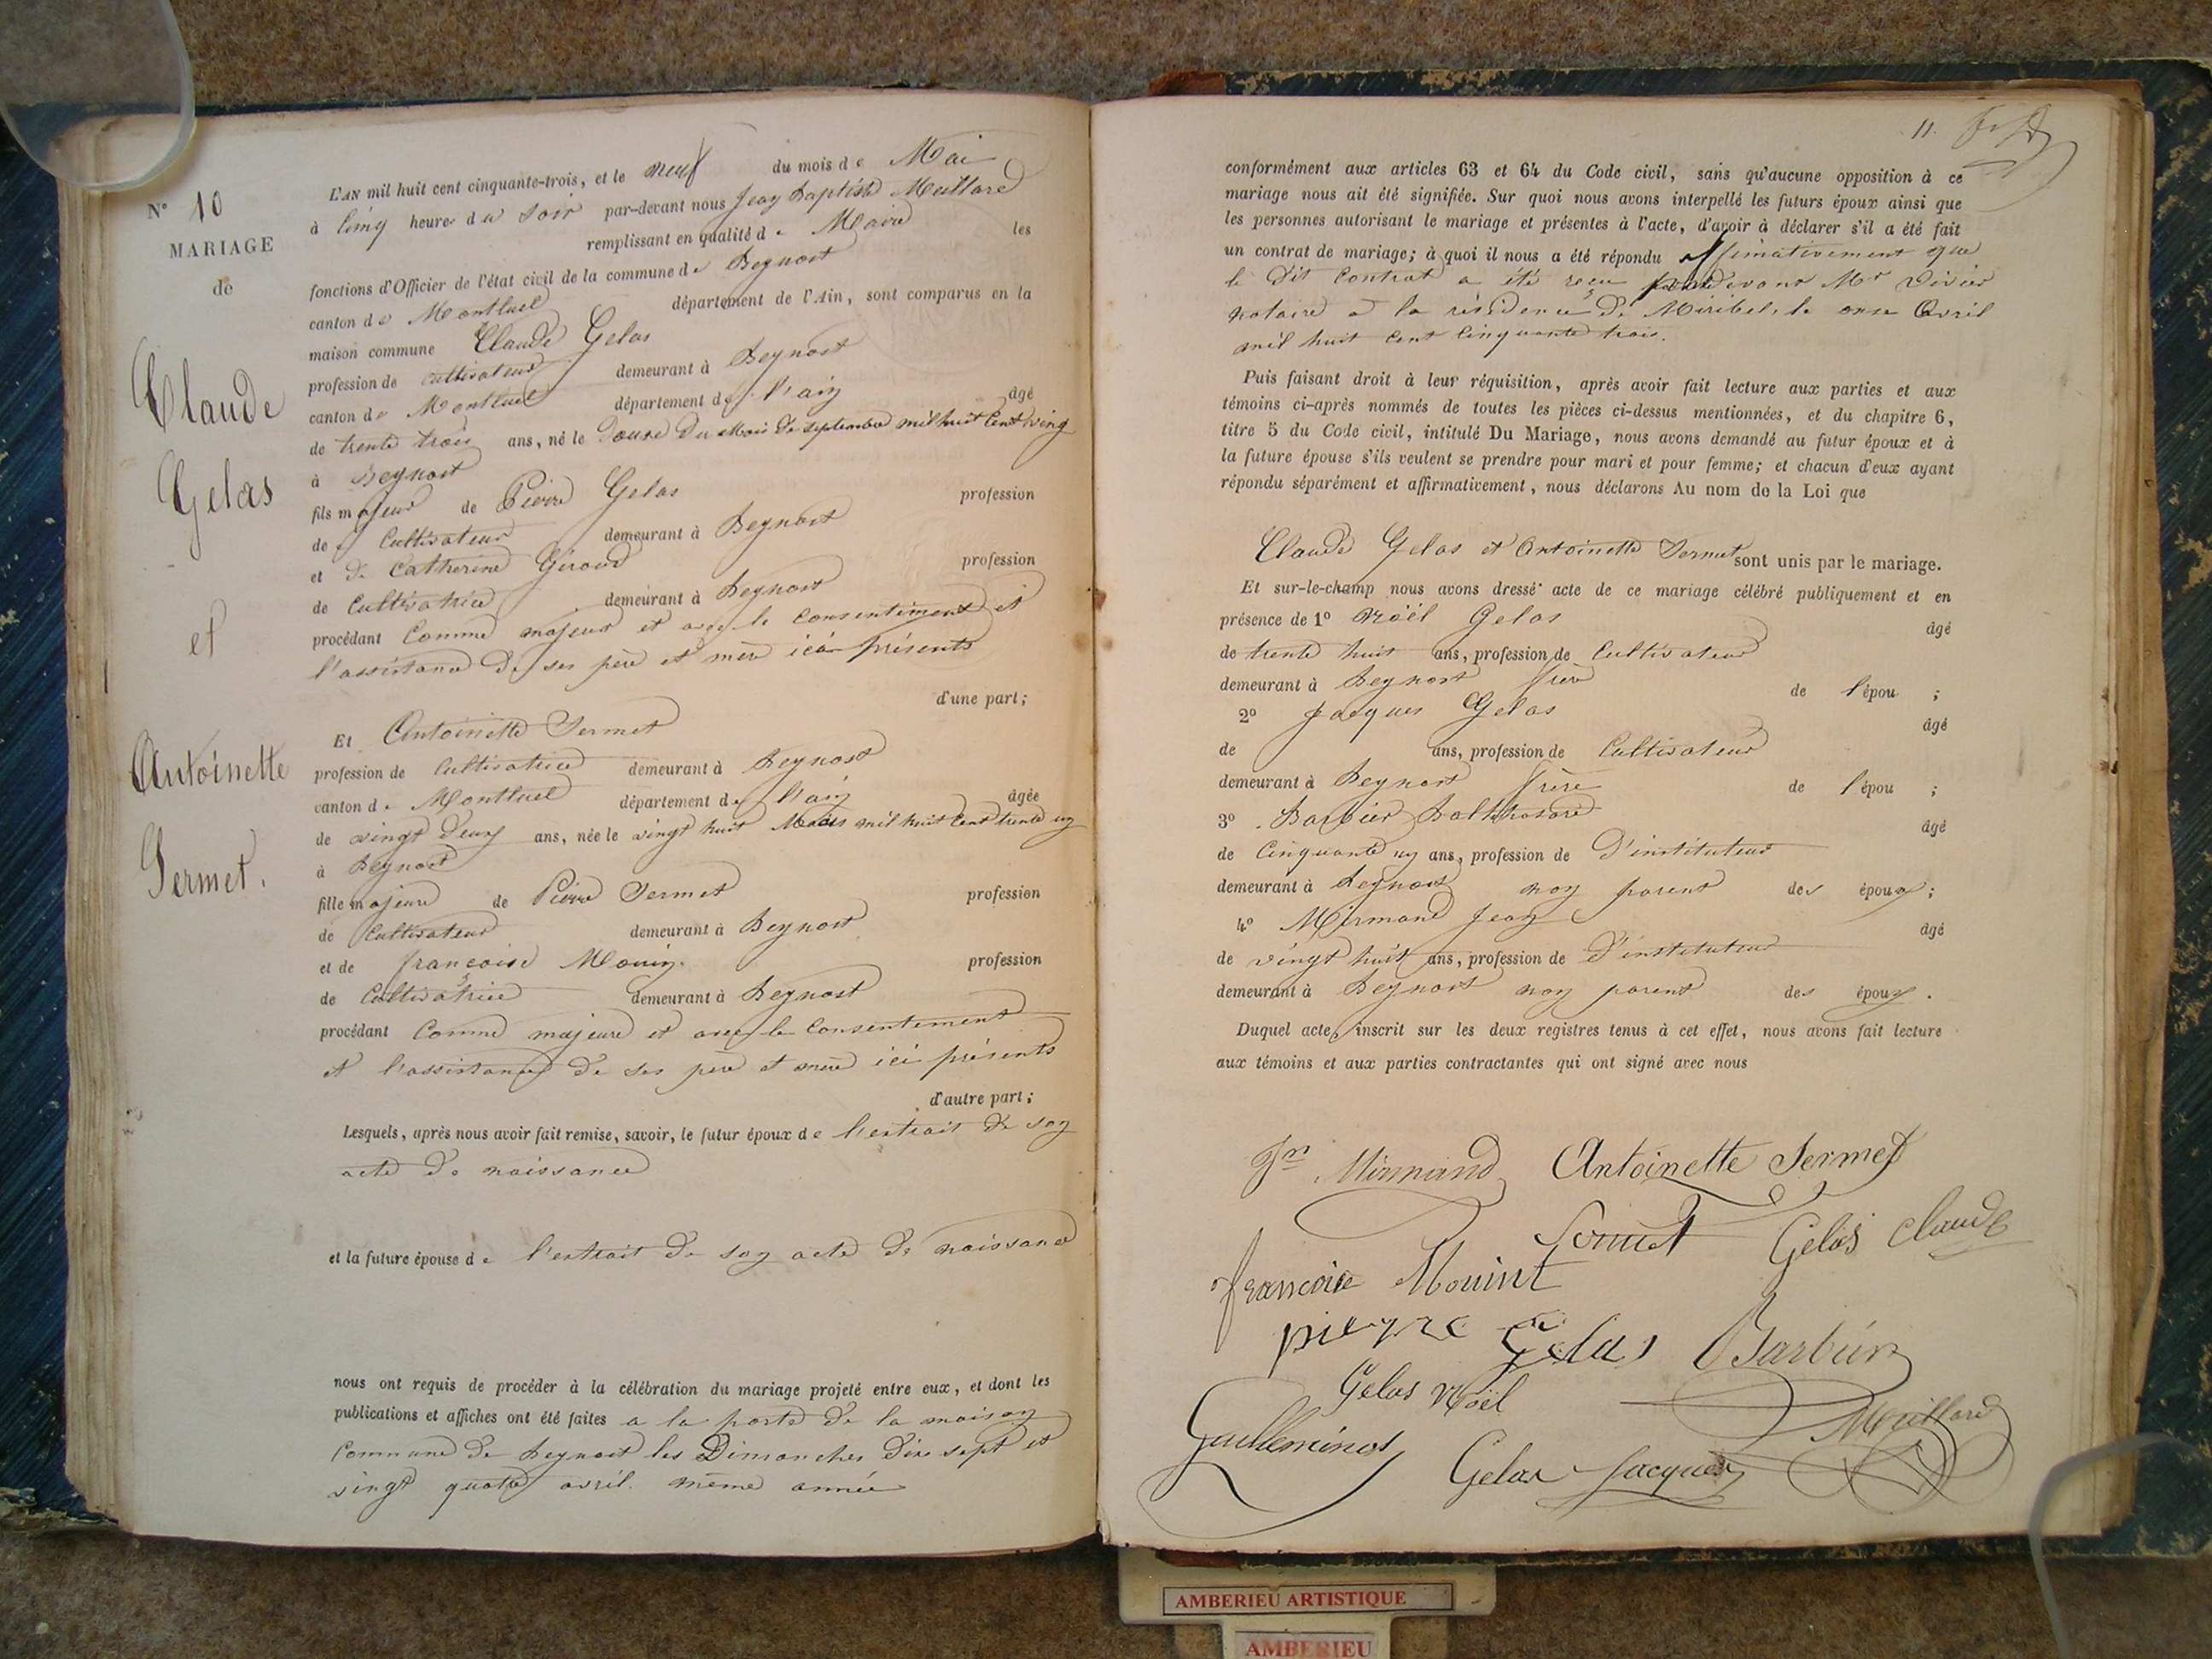 N° 10
MARIAGE
de
Claude
Gelas
et
Antoinette
Sermet.
L'AN mil huit cent cinquante-trois, et le neuf du mois de Mai
à cinq heures du soir par-devant nous Jean Baptiste Meillard
remplissant en qualité de Maire les
fonctions d'Officier de l'état civil de la commune de Beynost
canton de Montluel département de l'Ain, sont comparus en la
maison commune Claude Gelas
profession de cultivateur demeurant à Beynost
canton de Montluel département de l'ain âgé
de trente trois ans, né le douze du mois de septembre mil huit cent vingt
à Beynost
fils majeur de Pierre Gelas profession
de cultivateur demeurant à Beynost
et de Catherine Giroud profession
de Cultivatrice demeurant à Beynost
procédant Comme majeur et avec le consentement et
l'assistance de ses père et mère ici présents
d'une part;
Et Antoinette Sermet
profession de cultivatrice demeurant à Beynost
canton de Montluel département de l'ain âgée
de vingt deux ans, née le vingt huit Mars mil huit cent trente un
à Beynost
fille majeure de Pierre Sermet profession
de Cultivateur demeurant à Beynost
et de françoise Mouin profession
de Cultivatrice demeurant à Beynost
procédant Comme majeure et avec le Consentement
et l'assistance de ses père et mère ici présents
d'autre part;
Lesquels, après nous avoir fait remise, savoir, le futur époux de l'extrait de son
acte de naissance
et la future épouse de l'extrait de son acte de naissance
nous ont requis de procéder à la célébration du mariage projeté entre eux, et dont les
publications et affiches ont été faites a la porte de la maison
Commune de Beynost les Dimanches dix sept et
vingt quatre avril même année
11.
conformément aux articles 63 et 64 du Code civil, sans qu'aucune opposition à ce
mariage nous ait été signifiée. Sur quoi nous avons interpellé les futurs époux ainsi que
les personnes autorisant le mariage et présentes à l'acte, d'avoir à déclarer s'il a été fait
un contrat de mariage; à quoi il nous a été répondu affirmativement que
le dit contrat a été reçu pardevant Mr
notaire a la résidence de Miribel, le onze Avril
mil huit cent cinquante trois.
Puis faisant droit à leur réquisition, après avoir fait lecture aux parties et aux
témoins ci-après nommés de toutes les pièces ci-dessus mentionnées, et du chapitre 6,
titre 5 du Code civil, intitulé Du Mariage, nous avons demandé au futur époux et à
la future épouse s'ils veulent se prendre pour mari et pour femme; et chacun d'eux ayant
répondu séparément et affirmativement, nous déclarons Au nom de la Loi que
Claude Gelas et Antoinette Sermet sont unis par le mariage.
Et sur-le-champ nous avons dressé acte de ce mariage célébré publiquement et en
présence de 1° Noël Gelas âgé
de trente huit ans, profession de Cultivateur
demeurant à Beynost frère de l'épou ;
2° Jacques Gelas âgé
de ans, profession de Cultivateur
demeurant à Beynost frère de l'épou ;
3° Barbier Balthasard âgé
de Cinquante un ans, profession de D'instituteur
demeurant à Beynost non parent des époux ;
4° Mirmand Jean âgé
de vingt huit ans, profession de D'instituteur
demeurant à Beynost non parent des époux .
Duquel acte, inscrit sur les deux registres tenus à cet effet, nous avons fait lecture
aux témoins et aux parties contractantes qui ont signé avec nous
Jn Mirmand Antoinette Sermet
Sermet Gelas Claude
françoise Mouint
pierre Gelas Barbier
Gelas Noël
Meillard
Guilleminot
Gelas Jacques
AMBERIEU ARTISTIQUE
AMBERIEU